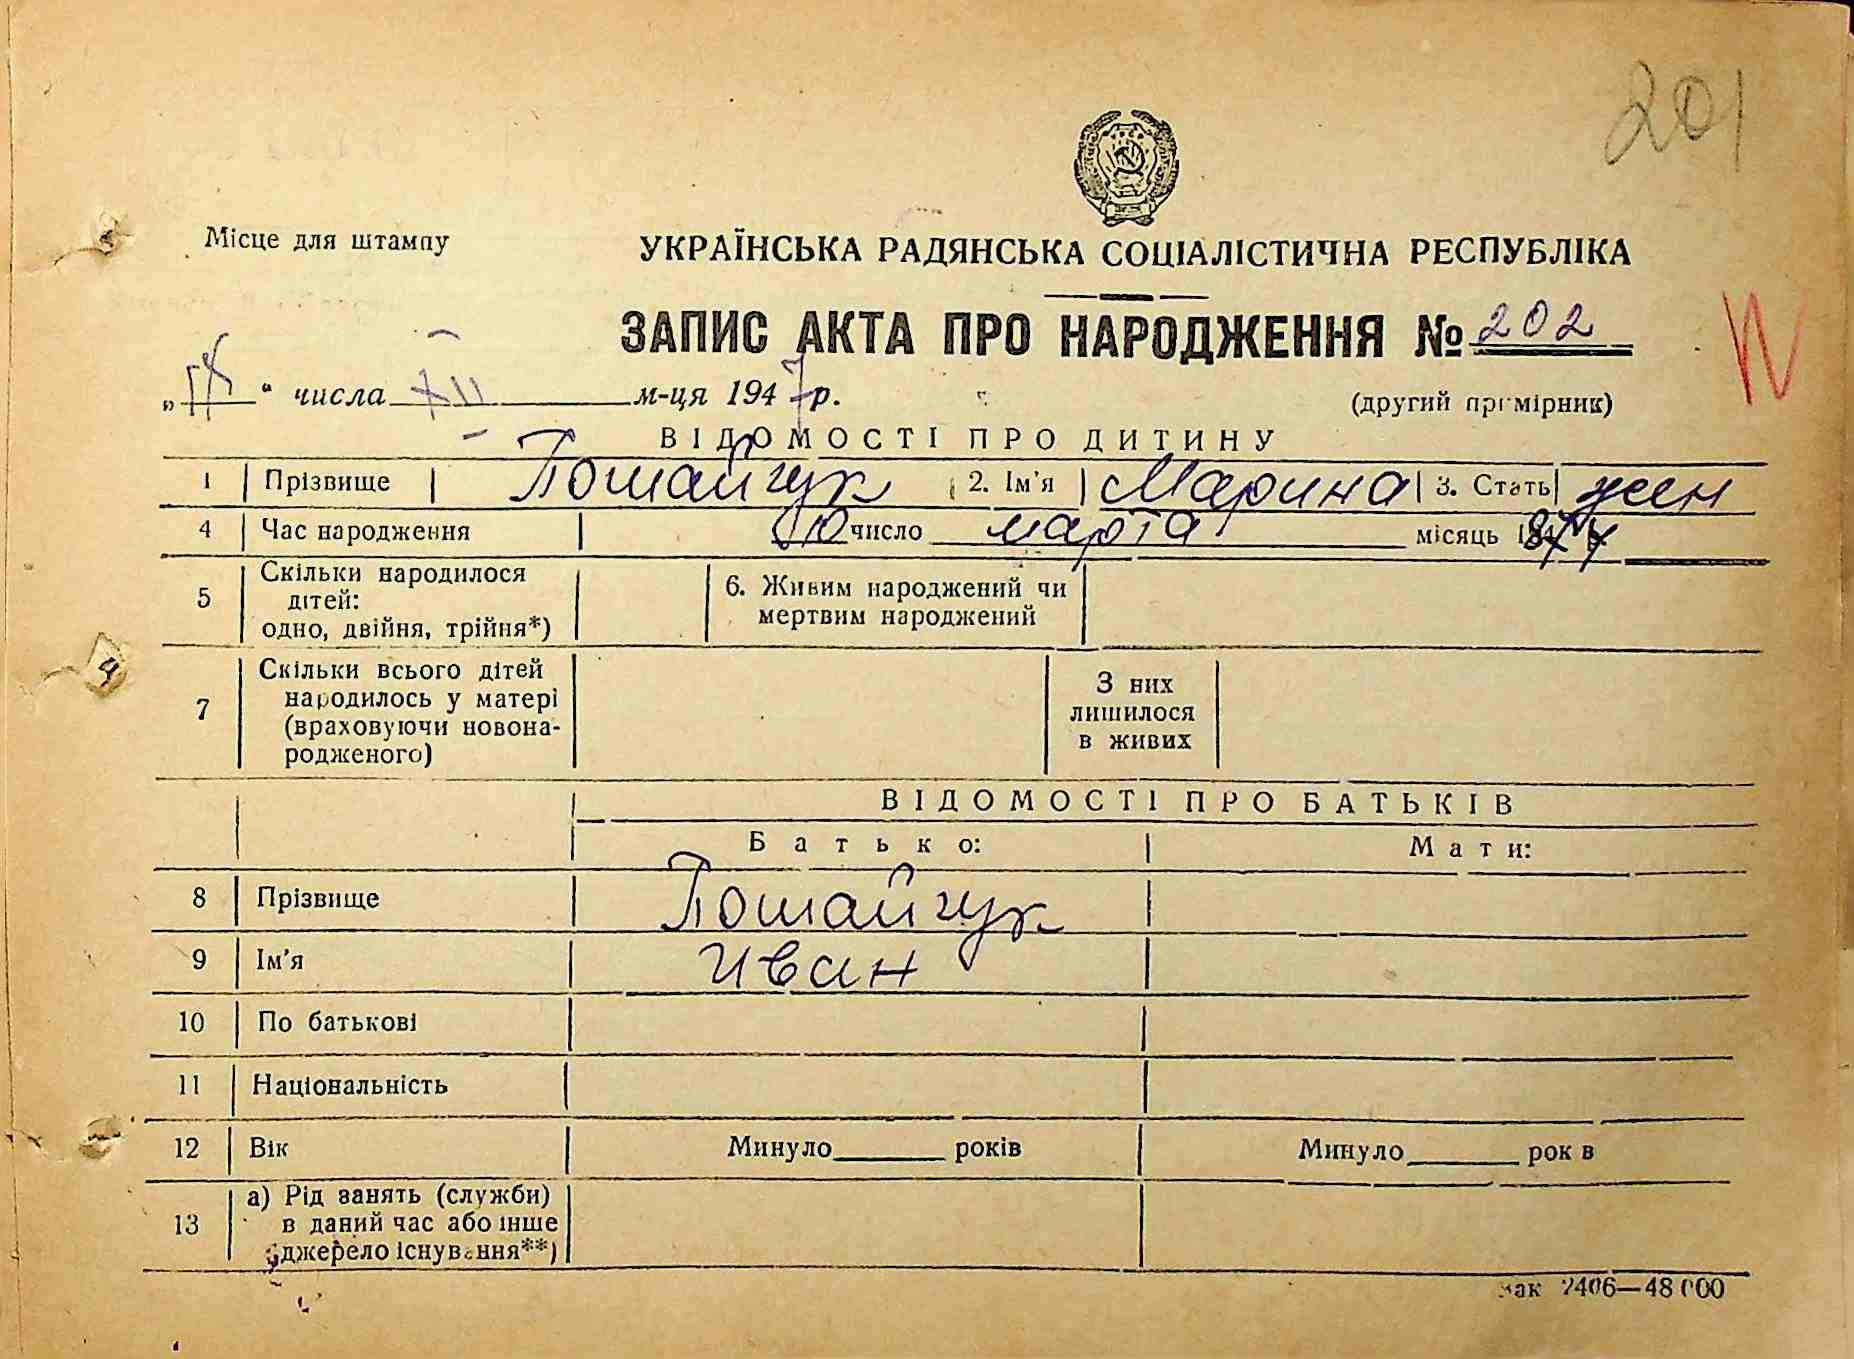 201
Місце для штампу
УКРАЇНСЬКА РАДЯНСЬКА СОЦІАЛІСТИЧНА РЕСПУБЛІКА
ЗАПИС АКТА ПРО НАРОДЖЕННЯ № 202
„ “ числа XII м-ця 1947 р.
(другий примірник)
ВІДОМОСТІ ПРО ДИТИНУ
1 Прізвище Пошайчук 2. Ім'я Марина 3. Стать жен
4 Час народження 10 число марта місяць
5 Скільки народилося дітей: одно, двійня, трійня*) 6. Живим народжений чи мертвим народжений
7 Скільки всього дітей народилось у матері (враховуючи новонародженого) З них лишилося в живих
ВІДОМОСТІ ПРО БАТЬКІВ
Батько: Мати:
8 Прізвище Пошайчук
9 Ім'я Иван
10 По батькові
11 Національність
12 Вік Минуло років Минуло рок в
13 а) Рід занять (служби) в даний час або інше джерело існування**)
Зак 2406—48 000